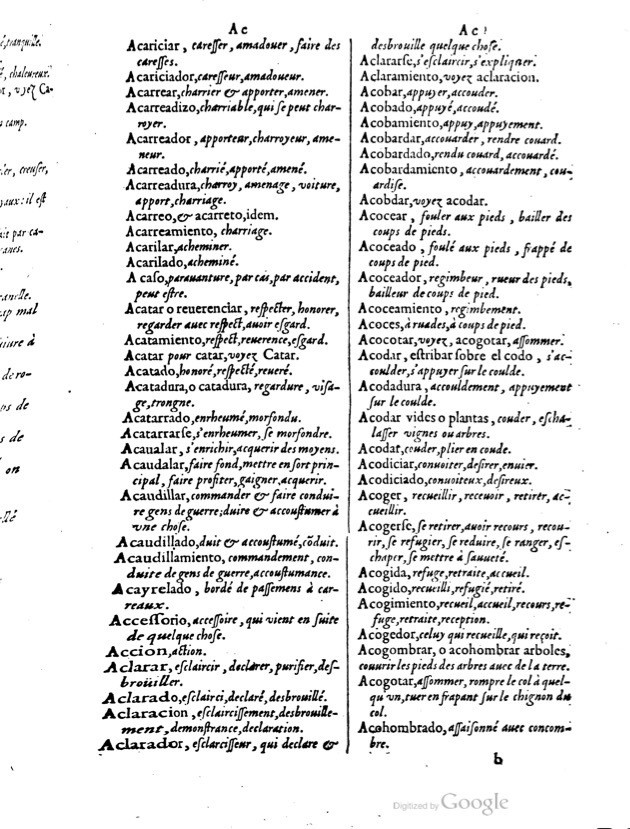 tranquille.
, chaleureux.
or, voyez Ca-
camp.
er, creuser,
yaux: il est
it par ca-
anes.
anelle.
ap mal
uire à
de ro-
os de
s de
on
llé
Ac
Acariciar, caresser, amadouer, faire des
caresses.
Acariciador, caresseur, amadoueur.
Acarrear, charrier & apporter, amener.
Acarreadizo, charriable, qui se peut char-
royer.
Acarreador, apporteur, charroyeur, ame-
neur.
Acarreado, charrié, apporté, amené.
Acarreadura, charroy, amenage, voiture,
apport, charriage.
Acarreo, & acarreto, idem.
Acarreamiento, charriage.
Acarilar, acheminer.
Acarilado, acheminé.
A caso, paravanture, par cas, par accident,
peut estre.
Acatar o reuerenciar, respecter, honorer,
regarder auec respect, auoir esgard.
Acatamiento, respect, reuerence, esgard.
Acatar pour catar, voyez Catar.
Acatado, honoré, respecté, reueré.
Acatadura, o catadura, regardure, visa-
ge, trongne.
Acatarrado, enrheumé, morfondu.
Acatarrarse, s'enrheumer, se morfondre.
Acaualar, s'enrichir, acquerir des moyens.
Acaudalar, faire fond, mettre en sort prin-
cipal, faire profiter, gaigner, acquerir.
Acaudillar, commander & faire condui-
re gens de guerre; duire & accoustumer à
vne chose.
Acaudillado, duit & accoustumé, cõduit.
Acaudillamiento, commandement, con-
duite de gens de guerre, accoustumance.
Acayrelado, bordé de passemens à car-
reaux.
Accessorio, accessoire, qui vient en suite
de quelque chose.
Accion, action.
Aclarar, esclaircir, declarer, purifier, des-
broüiller.
Aclarado, esclairci, declaré, desbrouillé.
Aclaracion, esclaircissement, desbrouille-
ment, demonstrance, declaration.
Aclarador, esclarcisseur, qui declare &
Ac
desbrouille quelque chose.
Aclararse, s'esclaircir, s'expliquer.
Aclaramiento, voyez aclaracion.
Acobar, appuyer, accouder.
Acobado, appuyé, accoudé.
Acobamiento, appuy, appuyement.
Acobardar, accouarder, rendre couard.
Acobardado, rendu couard, accouardé.
Acobardamiento, accouardement, cou-
ardise.
Acobdar, voyez acodar.
Acocear, fouler aux pieds, bailler des
coups de pieds.
Acoceado, foulé aux pieds, frappé de
coups de pied.
Acoceador, regimbeur, rueur des pieds,
bailleur de coups de pied.
Acoceamiento, regimbement.
Acoces, à ruades, à coups de pied.
Acocotar, voyez, acogotar, assommer.
Acodar, estribar sobre el codo, s'ac-
coulder, s'appuyer sur le coulde.
Acodadura, accouldement, appuyement
sur le coulde.
Acodar vides o plantas, couder, escha-
lasser vignes ou arbres.
Acodat, couder, plier en coude.
Acodiciar, conuoiter, desirer, enuier.
Acodiciado, conuoiteux, desireux.
Acoger, recueillir, receuoir, retirer, ac-
cueillir.
Acogerse, se retirer, auoir recours, recou-
rir, se refugier, se reduire, se ranger, es-
chaper, se mettre à sauueté.
Acogida, refuge, retraite, accueil.
Acogido, recueilli, refugié, retiré.
Acogimiento, recueil, accueil, recours, re-
fuge, retraite, reception.
Acogedor, celuy qui recueille, qui reçoit.
Acogombrar, o acohombrar arboles,
couurir les pieds des arbres auec de la terre.
Acogotar, assommer, rompre le col à quel-
qu'vn, tuer en frapant sur le chignon du
col.
Acohombrado, assaisonné auec concom-
bre.
b
Digitized by Google